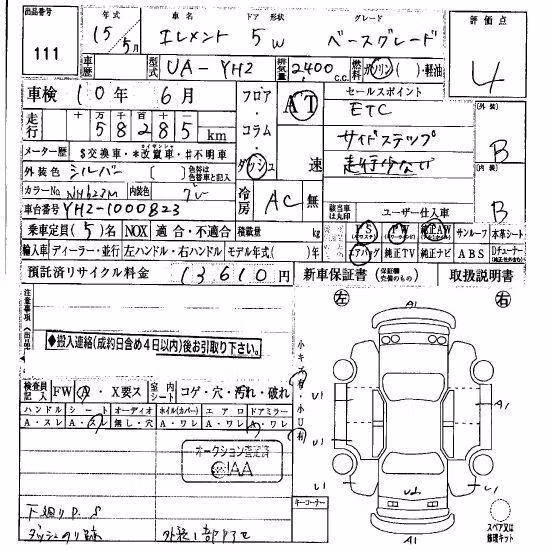 出品番号 年式 車名 ドア 形状 グレード 評価点
111 15年 5月 エレメント 5W ベースグレード 4
車歴 型式 UA-YH2 排気量 2400 c.c. 燃料 ガソリン ( )・軽油
車検 10年 6月 フロア・コラム・ダッシュ AT 速 セールスポイント 外装 B
走行 十 万 千 百 十 58285 km ETC
メーター歴 $交換車・*改竄車・#不明車 サイドステップ
外装色 シルバー [ ] 色替は色替車と記入 走行少ない 内装 B
カラーNo NH623M 内装色 グレー 冷房 AC 無
車台番号 YH2-1000823 該当車は丸印 ユーザー仕入車
乗車定員 (5)名 NOX 適合・不適合 積載量 kg PS PW 純正AW サンルーフ 本革シート
輸入車 ディーラー・並行 左ハンドル・右ハンドル モデル年式( )年 エアバッグ 純正TV 純正ナビ ABS Dチューナー
預託済リサイクル料金 13610円 新車保証書 取扱説明書
注意事項 左 右
◆搬入連絡(成約日含め4日以内)後お引取り下さい。 小キズ有・小U有
検査員記入 FW A・X要ス 室内シート コゲ・穴・汚れ・破れ
ハンドル シート オーディオ ホイル(カバー) エアロ ドアミラー
A・スレ A・スレ 無し・穴 A・ワレ A・ワレ A・ワレ
オークション査定済
JAA
キーコーナー
下廻りP.S
ダッシュのり跡 外装1部ハゲ
A1
U1
A1
U1
U1
A1
スペア又は修理キット